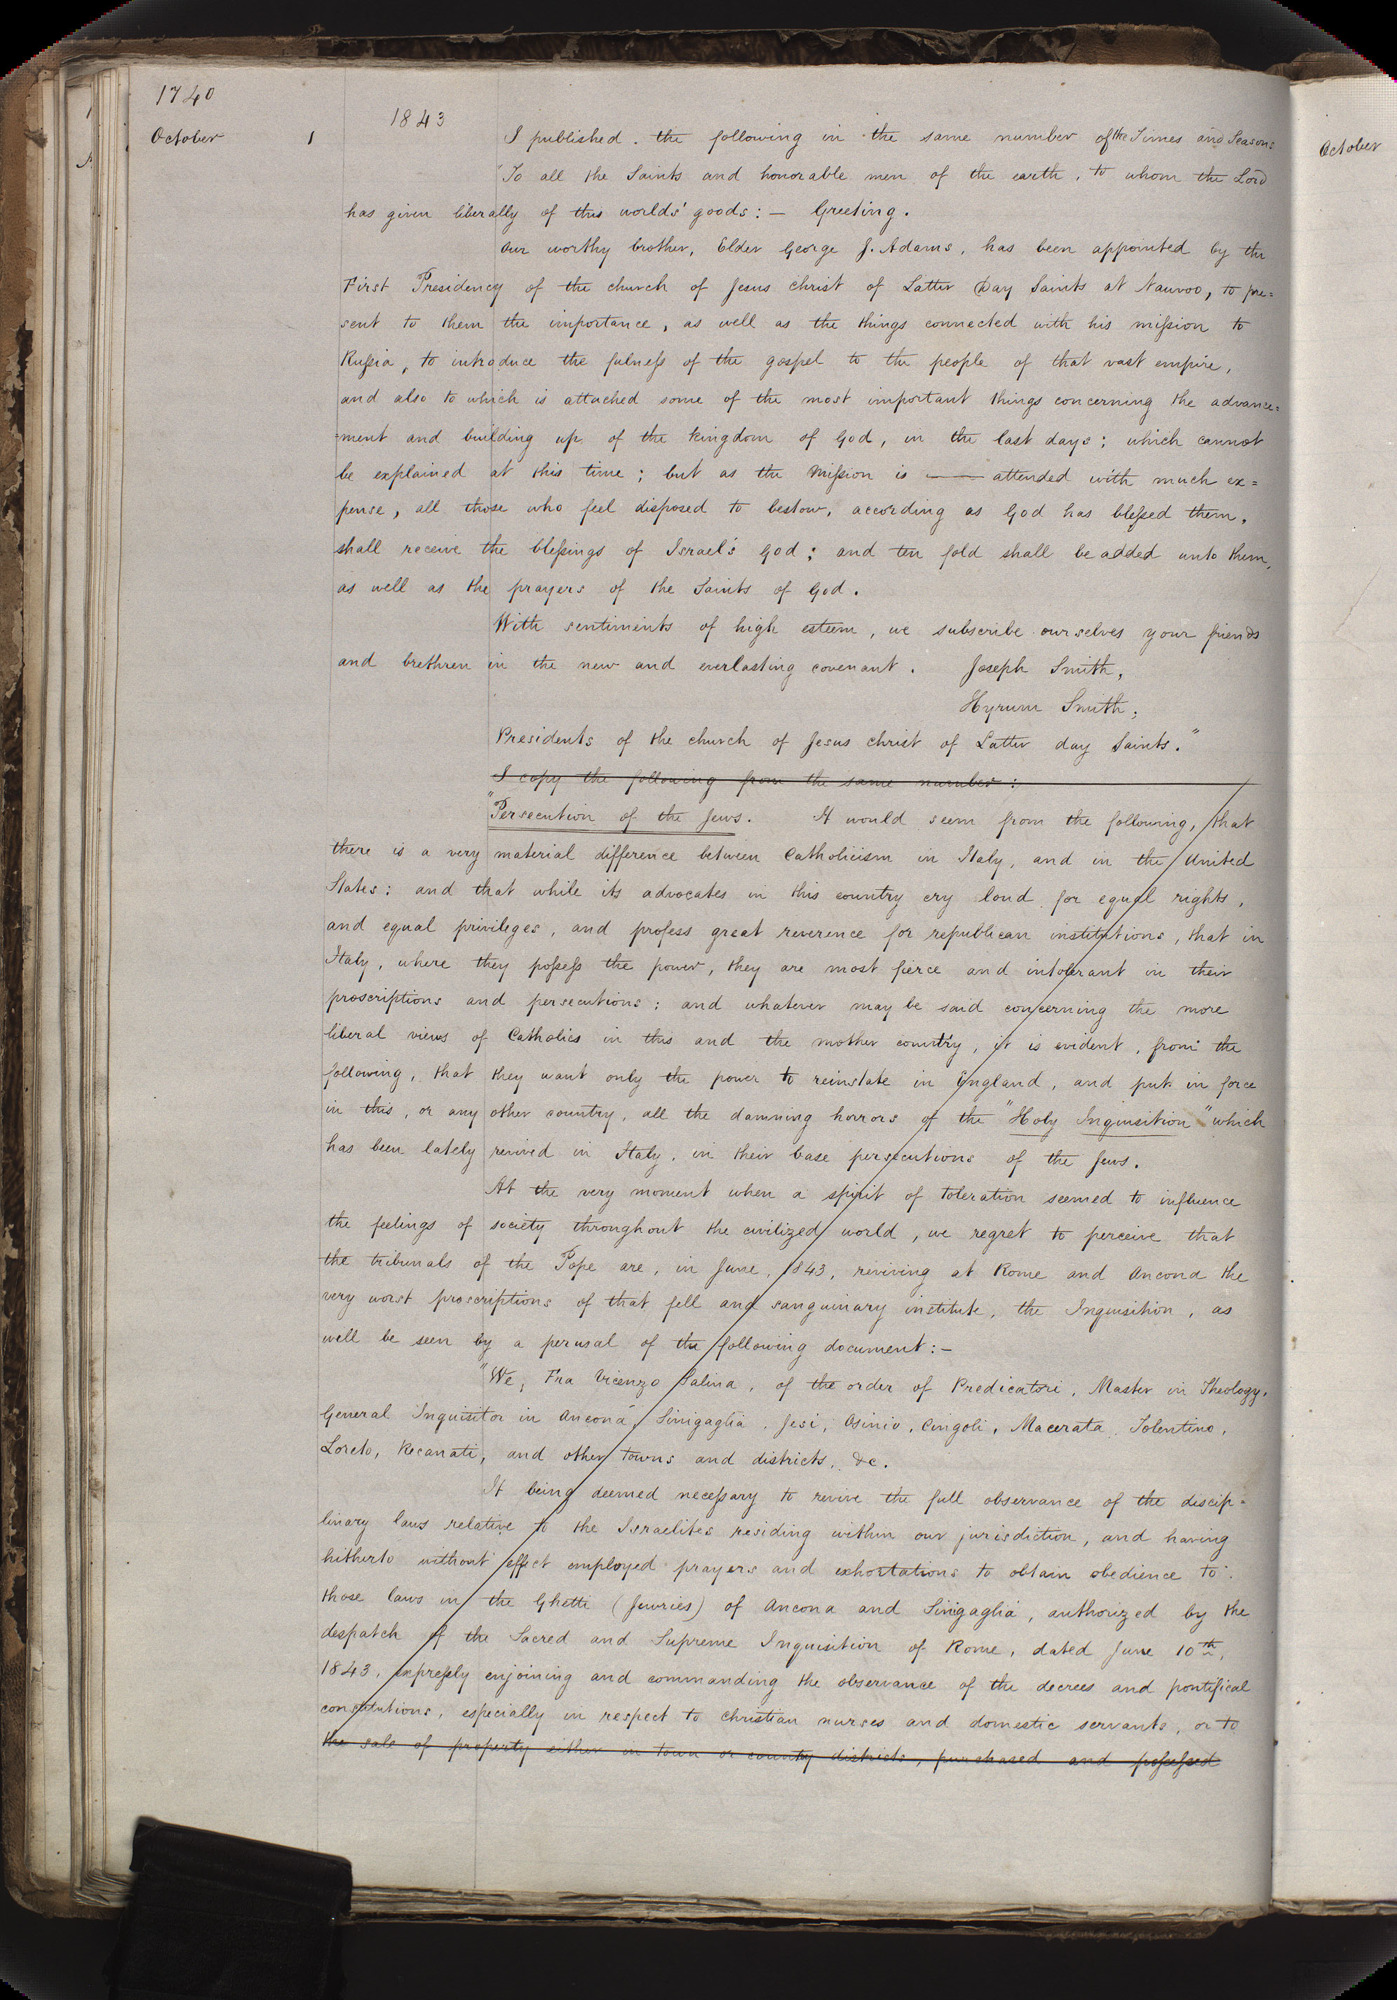 1740
1843
October 1 I published the following in the same number of the Times and Seasons
"To all the Saints and honorable men of the earth, to whom the Lord
has given liberally of this worlds' goods: — Greeting.
Our worthy brother, Elder George J. Adams, has been appointed by the
First Presidency of the church of Jesus Christ of Latter Day Saints at Nauvoo, to pre=
sent to them the importance, as well as the things connected with his mission to
Russia, to introduce the fulness of the gospel to the people of that vast empire,
and also to which is attached some of the most important things concerning the advance=
=ment and building up of the kingdom of God, in the last days; which cannot
be explained at this time; but as the Mission is —— attended with much ex=
pense, all those who feel disposed to bestow, according as God has blessed them,
shall receive the blessings of Israel's God; and ten fold shall be added unto them,
as well as the prayers of the Saints of God.
With sentiments of high esteem, we subscribe ourselves your friends
and brethren in the new and everlasting covenant. Joseph Smith,
Hyrum Smith;
Presidents of the church of Jesus Christ of Latter day Saints."
I copy the following from the same number:
"Persecution of the Jews. It would seem from the following, that
there is a very material difference between Catholicism in Italy, and in the United
States: and that while its advocates in this country cry loud for equal rights,
and equal privileges, and profess great reverence for republican institutions, that in
Italy, where they possess the power, they are most fierce and intolerant in their
proscriptions and persecutions: and whatever may be said concerning the more
liberal views of Catholics in this and the mother country, it is evident, from the
following, that they want only the power to reinstate in England, and put in force
in this, or any other country, all the damning horrors of the "Holy Inquisition" which
has been lately revived in Italy, in their base persecutions of the Jews.
At the very moment when a spirit of toleration seemed to influence
the feelings of society throughout the civilized world, we regret to perceive that
the tribunals of the Pope are, in June, 1843, reviving at Rome and Ancona the
very worst proscriptions of that fell and sanguinary institute, the Inquisition, as
will be seen by a perusal of the following document:—
"We, Fra Vicenzo Salina, of the order of Predicatori, Master in Theology,
General Inquisitor in Ancona, Sinigaglia, Jesi, Osinio, Cingoli, Macerata, Tolentino,
Loreto, Recanati, and other towns and districts, &c.
It being deemed necessary to revive the full observance of the discip-
linary laws relative to the Israelites residing within our jurisdiction, and having
hitherto without effect employed prayers and exhortations to obtain obedience to
those laws in the Ghetti (Jewries) of Ancona and Sinigaglia, authorized by the
despatch of the Sacred and Supreme Inquisition of Rome, dated June 10th,
1843, expressly enjoining and commanding the observance of the decrees and pontifical
constitutions, especially in respect to Christian nurses and domestic servants, or to
the sale of property either in town or country districts, purchased and possessed
October